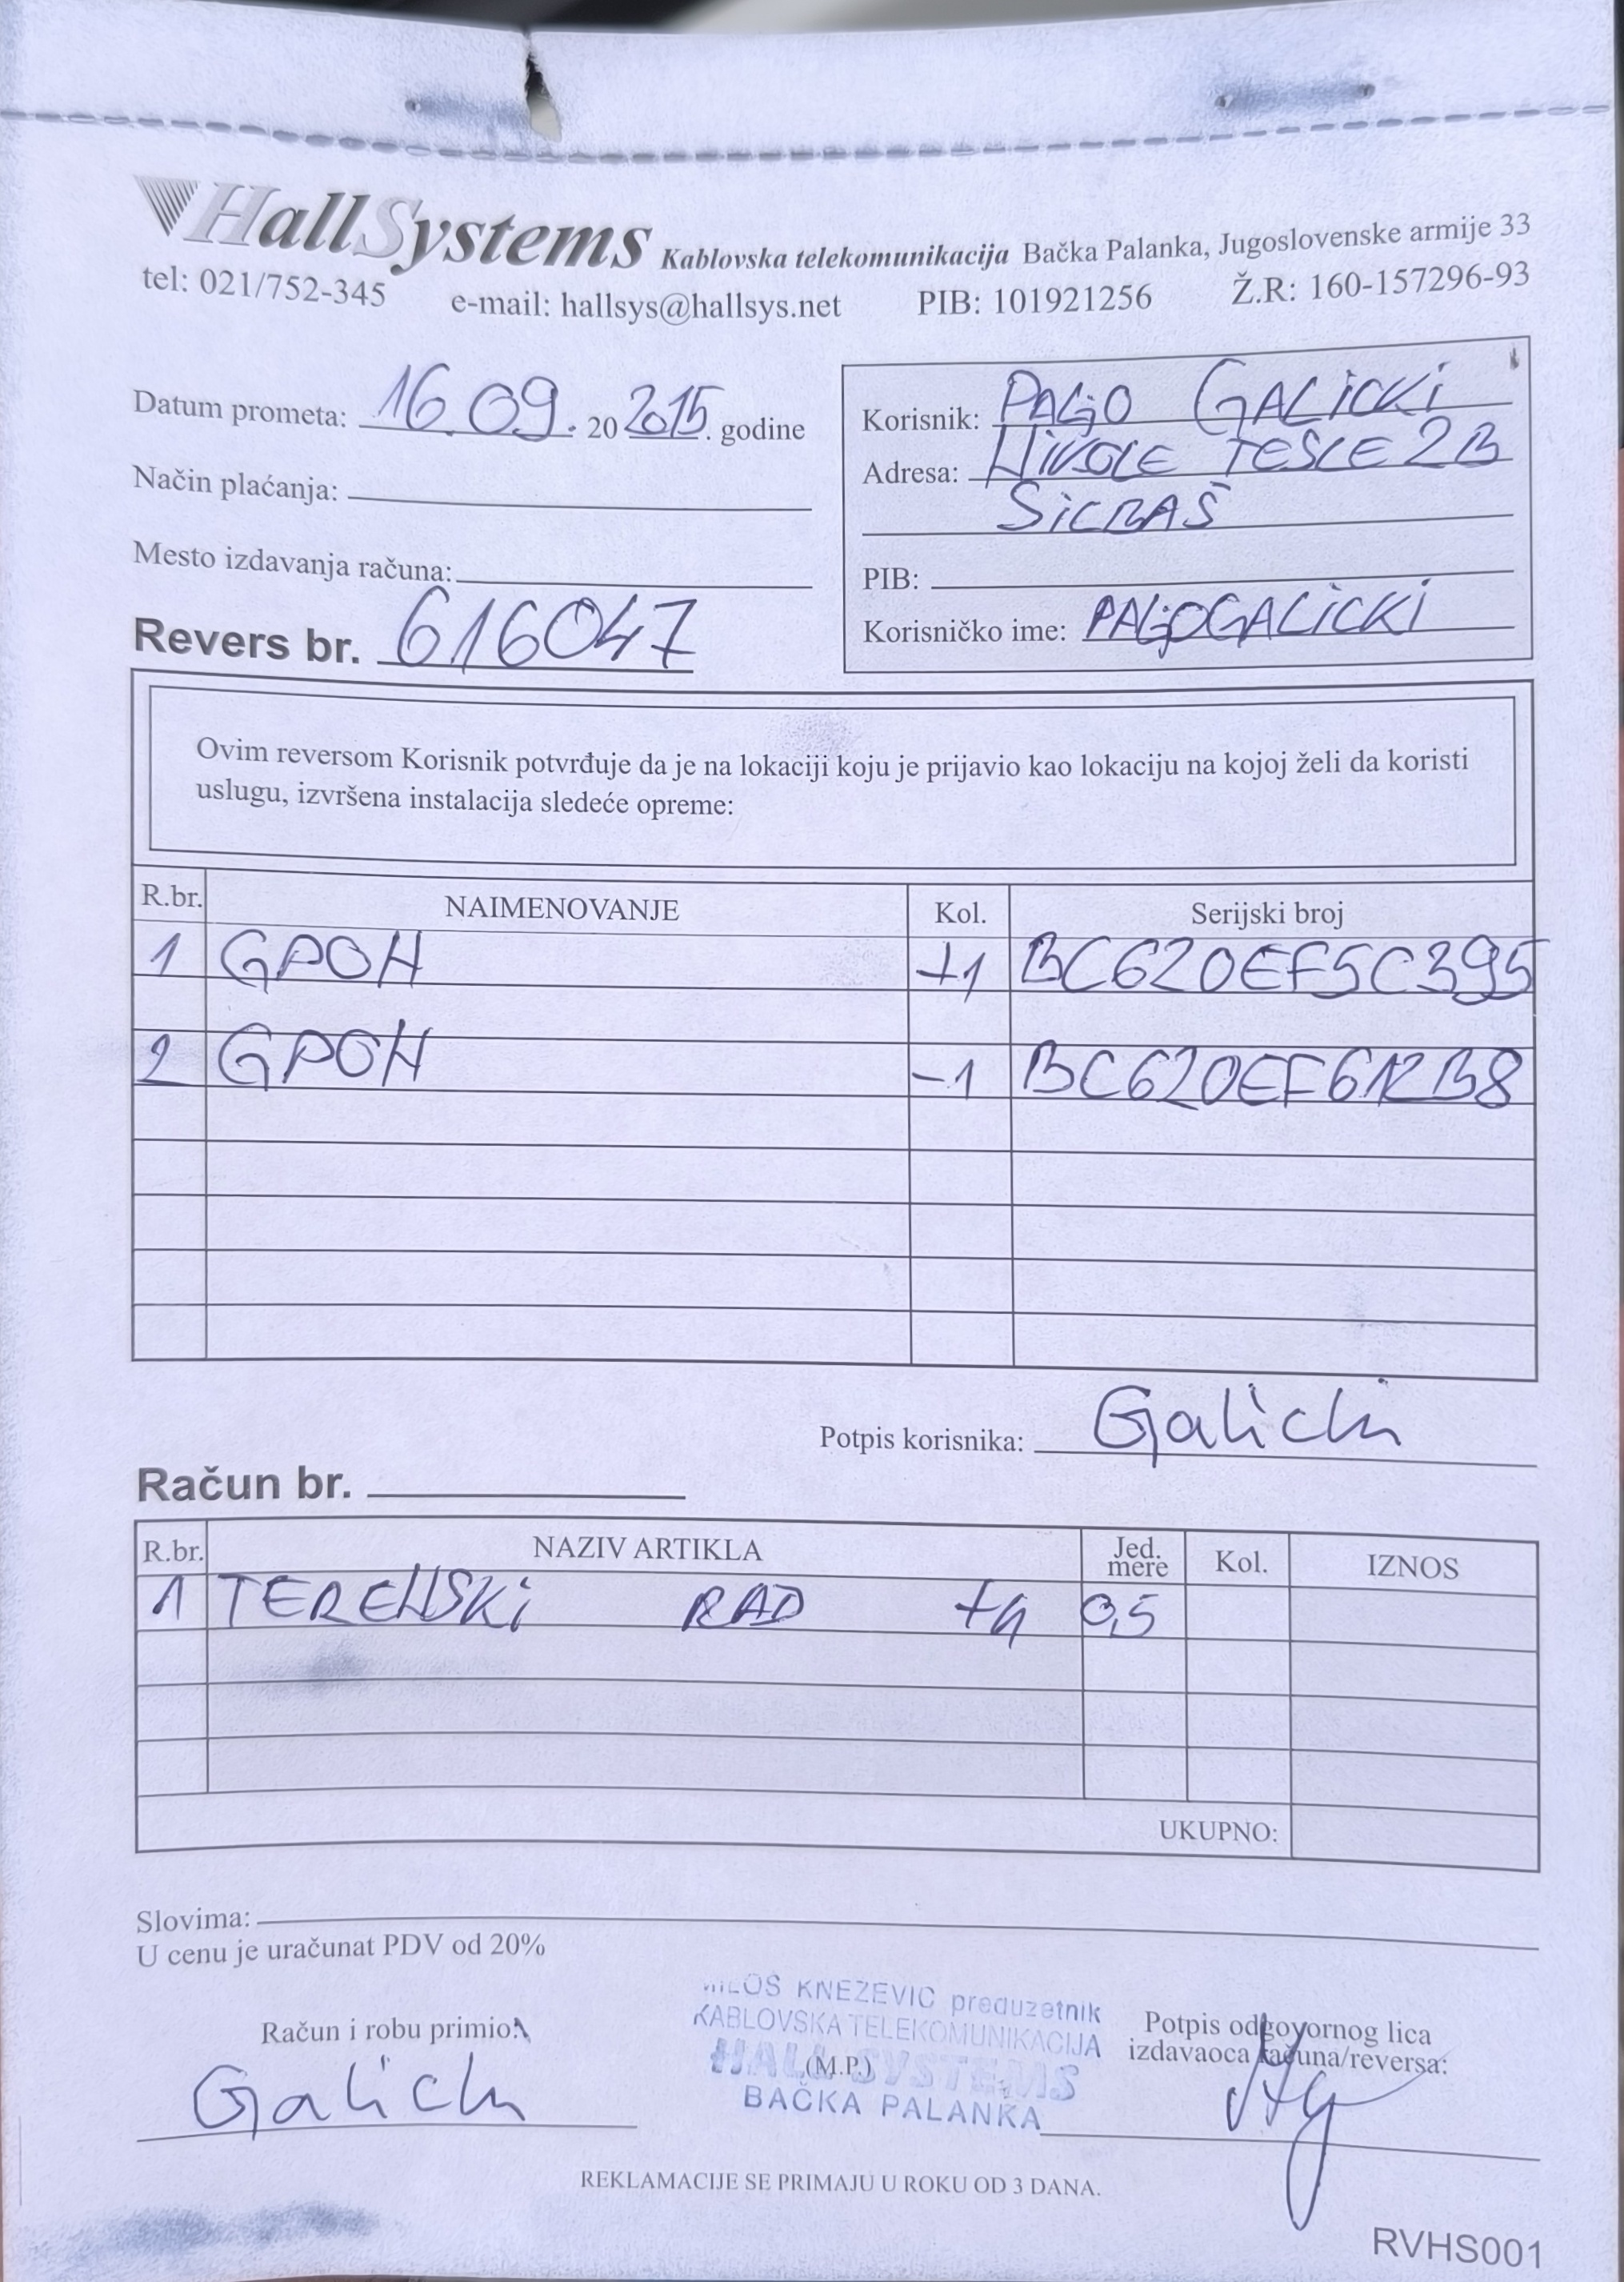 HallSystems Kablovska telekomunikacija Bačka Palanka, Jugoslovenske armije 33
tel: 021/752-345 e-mail: hallsys@hallsys.net PIB: 101921256 Ž.R: 160-157296-93
Datum prometa: 16.09. 20 2015. godine
Način plaćanja:
Mesto izdavanja računa:
Revers br. 616047
Korisnik: PALJO GALICKI
Adresa: NIKOLE TESLE 2B
SILBAŠ
PIB:
Korisničko ime: PALJOGALICKI
Ovim reversom Korisnik potvrđuje da je na lokaciji koju je prijavio kao lokaciju na kojoj želi da koristi
uslugu, izvršena instalacija sledeće opreme:
R.br. NAIMENOVANJE Kol. Serijski broj
1 GPON +1 BC620EF5C395
2 GPON -1 BC620EF612B8
Potpis korisnika: Galicki
Račun br.
R.br. NAZIV ARTIKLA Jed. mere Kol. IZNOS
1 TERENSKI RAD 0,5
UKUPNO:
Slovima:
U cenu je uračunat PDV od 20%
Račun i robu primio:
Galicki
MILOŠ KNEZEVIC preduzetnik
KABLOVSKA TELEKOMUNIKACIJA
HALL SYSTEMS
(M.P.)
BAČKA PALANKA
Potpis odgovornog lica
izdavaoca računa/reversa:
REKLAMACIJE SE PRIMAJU U ROKU OD 3 DANA.
RVHS001